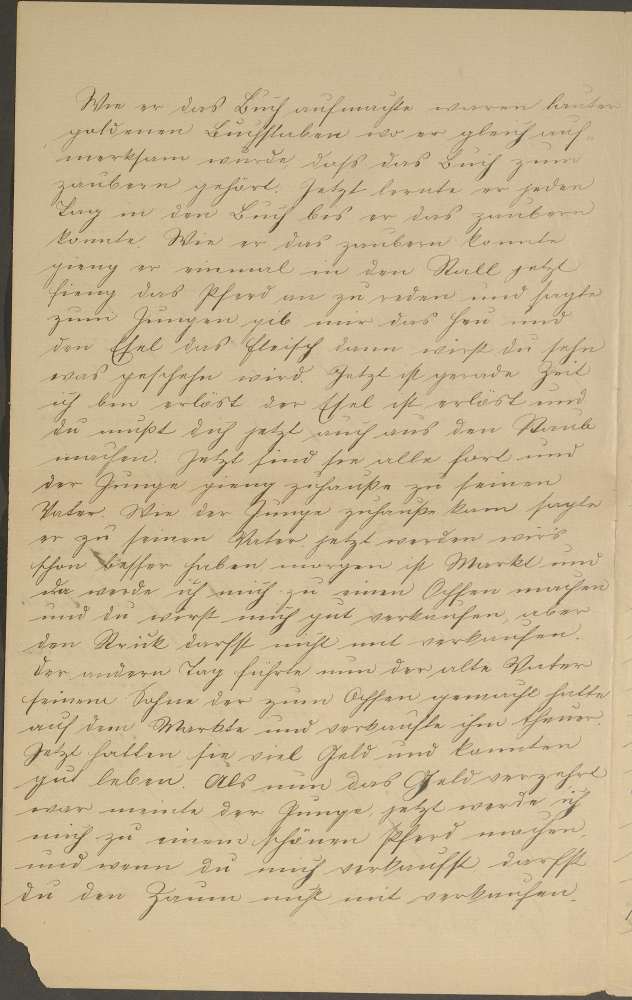 Wie er das Buch aufmachte waren lauter
goldenen Buchstaben wo er gleich auf=
merksam wurde daß das Buch zum
zaubern gehört. Jetzt lernte er jeden
Tag in den Buch bis er das zaubern
konnte. Wie er das zaubern konnte
gieng er einmal in den Stall jetzt
fieng das Pferd an zu reden und sagte
zum Jungen gib mir das Heu und
den Esel das Fleisch dann wirst du sehn
was geschehn wird. Jetzt ist gerade Zeit
ich ben erlöst der Esel ist erlöst und
du mußt dich jetzt auch aus den Staub
machen. Jetzt sind sie alle fort und
der Junge gieng zuhauße zu seinen
Vater. Wie der Junge zuhauße kam sagte
er zu seinen Vater jetzt werden wir's
schon besser haben morgen ist Markt und
da werde ich mich zu einen Ochsen machen
und du wirst mich gut verkaufen, aber
den Strük darfst nicht mit verkaufen.
Der andern Tag führte nun der alte Vater
seinem Sohne der zum Ochsen gemacht hatte
auf dem Markte und verkaufte ihm theuer.
Jetzt hatten sie viel Geld und konnten
gut leben. Als nun das Geld verzehrt
war meinte der Junge, jetzt werde ich
mich zu einem schönen Pferd machen,
und wenn du mich verkaufst darfst
du den Zaum nicht mit verkaufen.